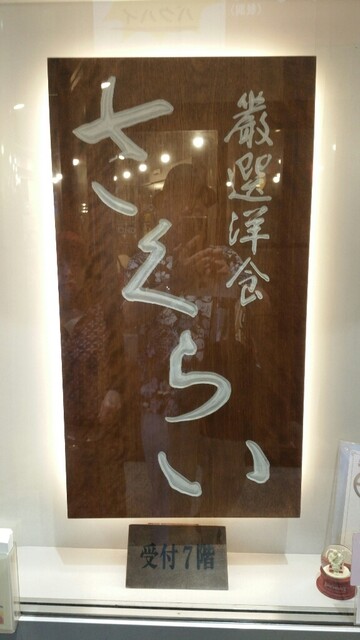 厳選洋食
さくらい
受付7階